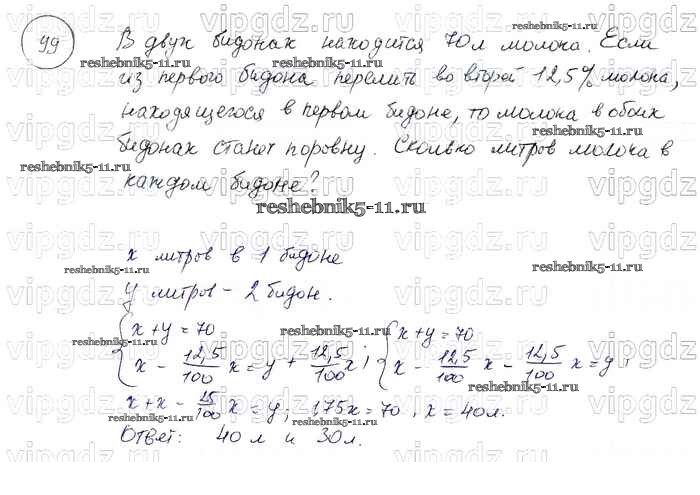 99
В двух бидонах находится 70л молока. Если
из первого бидона перелить во второй 12,5% молока,
находящегося в первом бидоне, то молока в обоих
бидонах станет поровну. Сколько литров молока в
каждом бидоне?
x литров в 1 бидоне
y литров - 2 бидон.
{x+y=70 {x+y=70
x - 12,5/100 x = y + 12,5/100 x; x - 12,5/100 x - 12,5/100 x = y;
x+x - 25/100 x = y; 1,75x=70, x=40л.
Ответ: 40 л и 30л.
vipgdz.ru
reshebnik5-11.ru